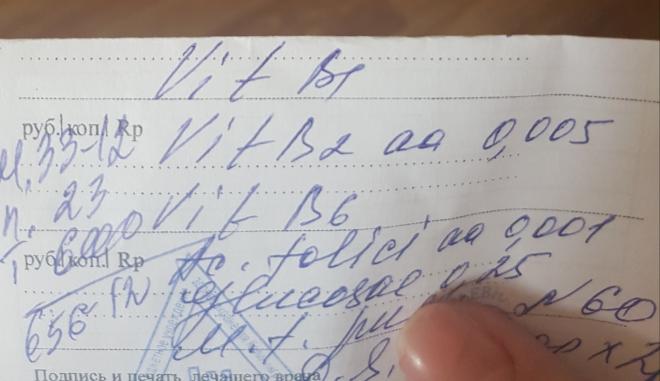 Vit B1
руб.|коп.| Rp
Vit B2 aa 0,005
33-12
23
Vit B6
6000
Ac. folici aa 0,001
руб.|коп.| Rp
Glucosae 0,25
N 60
656
M.f.
D.S.
Подпись и печать лечащего врача